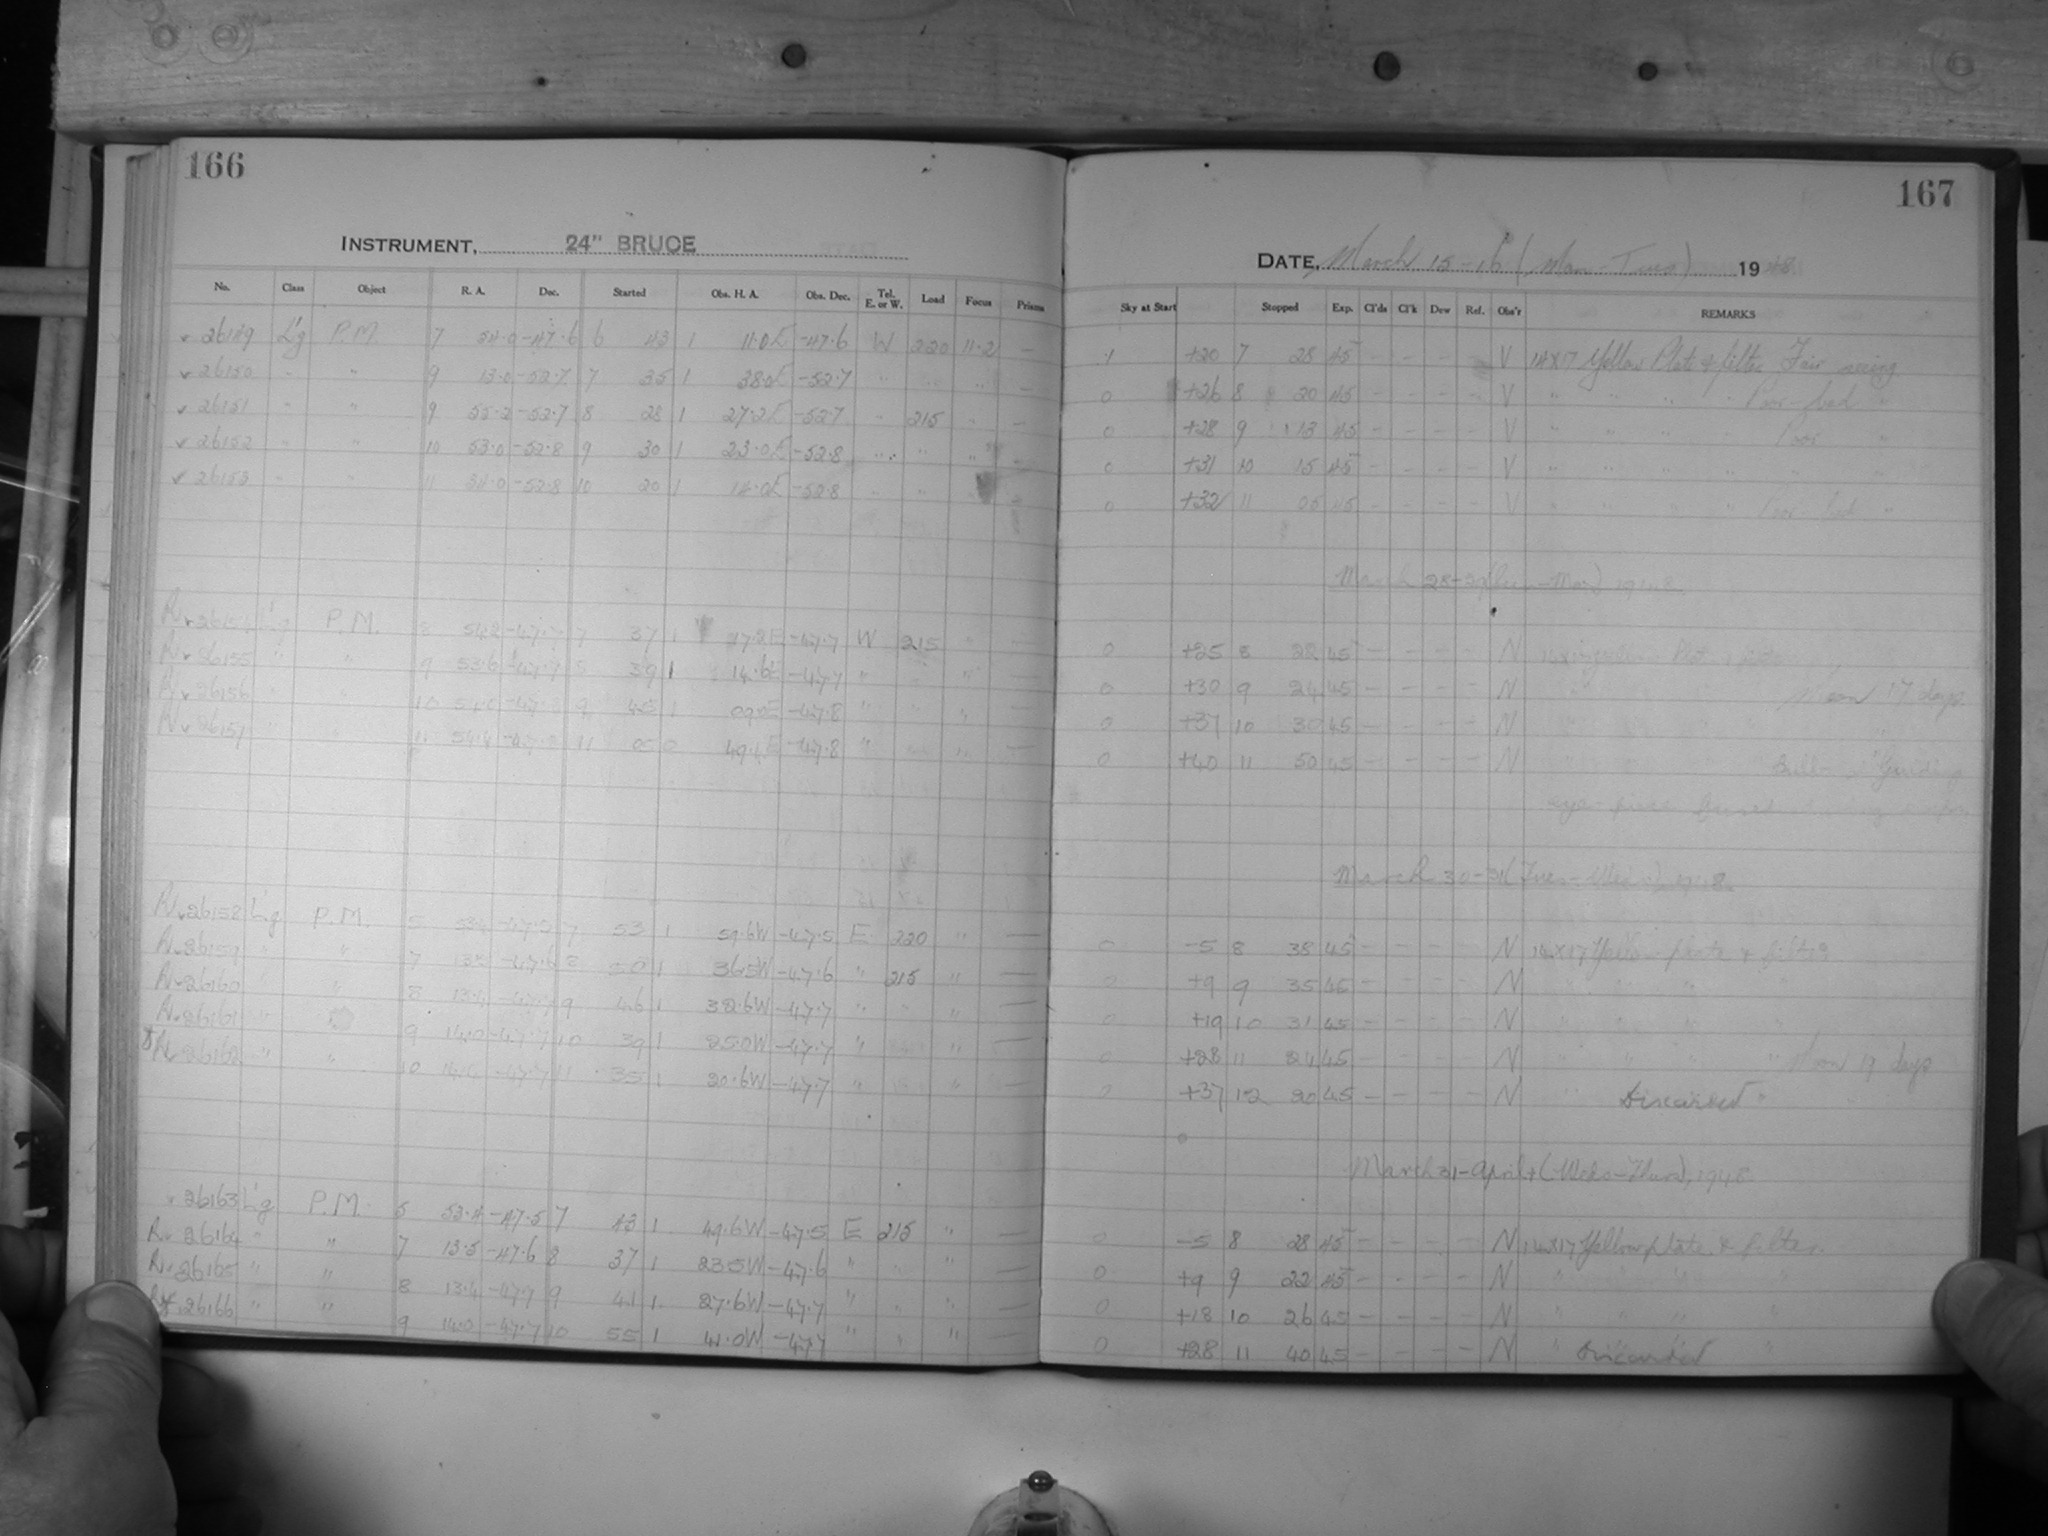 166
INSTRUMENT, 24" BRUCE
No. Class Object R. A. Dec. Started Obs. H. A. Obs. Dec. Tel. E. or W. Load Focus Prisms
26149 L'g P.M. 7 54.0 -47.6 6 43 1 11.0E -47.6 W 220 11.2 —
26150 " " 9 13.0 -52.7 7 35 1 38.0E -52.7 " " " —
26151 " " 9 55.2 -52.7 8 28 1 27.2E -52.7 " 215 " —
26152 " " 10 53.0 -52.8 9 30 1 23.0E -52.8 " " " —
26153 " " 11 34.0 -52.8 10 20 1 14.0E -52.8 " " " —
R 26154 L'g P.M. 8 54.2 -47.7 7 37 1 17.2E -47.7 W 215 " —
R 26155 " " 9 53.6 -47.7 8 39 1 14.6E -47.7 " " " —
R 26156 " " 10 -47.8 9 45 1 -47.8 " " —
R 26157 " 11 54.4 11 05 0 49.4E -47.8 " " —
R 26158 L'g P.M. 5 -47.5 7 53 1 59.6W -47.5 E 220 " —
R 26159 " " 7 13.5 -47.6 8 50 1 36.5W -47.6 " 215 " —
R 26160 " " 8 13.4 -47.7 9 46 1 32.6W -47.7 " " —
R 26161 " " 9 14.0 -47.7 10 39 1 25.0W -47.7 " " —
R 26162 " " 10 -47.7 11 35 1 20.6W -47.7 " " —
26163 L'g P.M. 5 53.4 -47.5 7 43 1 49.6W -47.5 E 215 "
R 26164 " " 7 13.5 -47.6 8 37 1 23.5W -47.6 " " " —
R 26165 " " 8 13.4 -47.7 9 41 1 27.6W -47.7 " " " —
26166 " " 9 14.0 -47.7 10 55 1 41.0W -47.7 " " " —
167
DATE, March 15-16 (Mon-Tues) 1948
Sky at Start Stopped Exp. Cl'ds Cl'k Dew Ref. Obs'r REMARKS
1 +20 7 28 45 - - - - V 14x17 Yellow Plate & filter Fair seeing
0 +26 8 20 45 - - - - V " " " " Poor-bad "
0 +28 9 13 45 - - - - V " " " " Poor "
0 +31 10 15 45 - - - - V " " " " " "
0 +32 11 05 45 - - - - V " " " " Poor bad "
March 28-29 (Sun-Mon) 1948
0 +25 8 22 45 - - - - N 14x17
0 +30 9 24 45 - - - - N Moon 17 days
0 +37 10 30 45 - - - - N
0 +40 11 50 45 - - - - N Guiding
eye-piece
March 30-31 (Tues-Weds) 1948
0 -5 8 38 45 - - - - N 14x17 Yellow plate & filter
0 +9 9 35 45 - - - - N
0 +19 10 31 45 - - - - N
0 +28 11 24 45 - - - - N Moon 19 days
0 +37 12 20 45 - - - - N Discarded
March 31-April 1 (Weds-Thurs), 1948
0 -5 8 28 45 - - - - N 14x17 Yellow plate & filter
0 +9 9 22 45 - - - - N " " " "
0 +18 10 26 45 - - - - N " " " "
0 +28 11 40 45 - - - - N " Discarded "